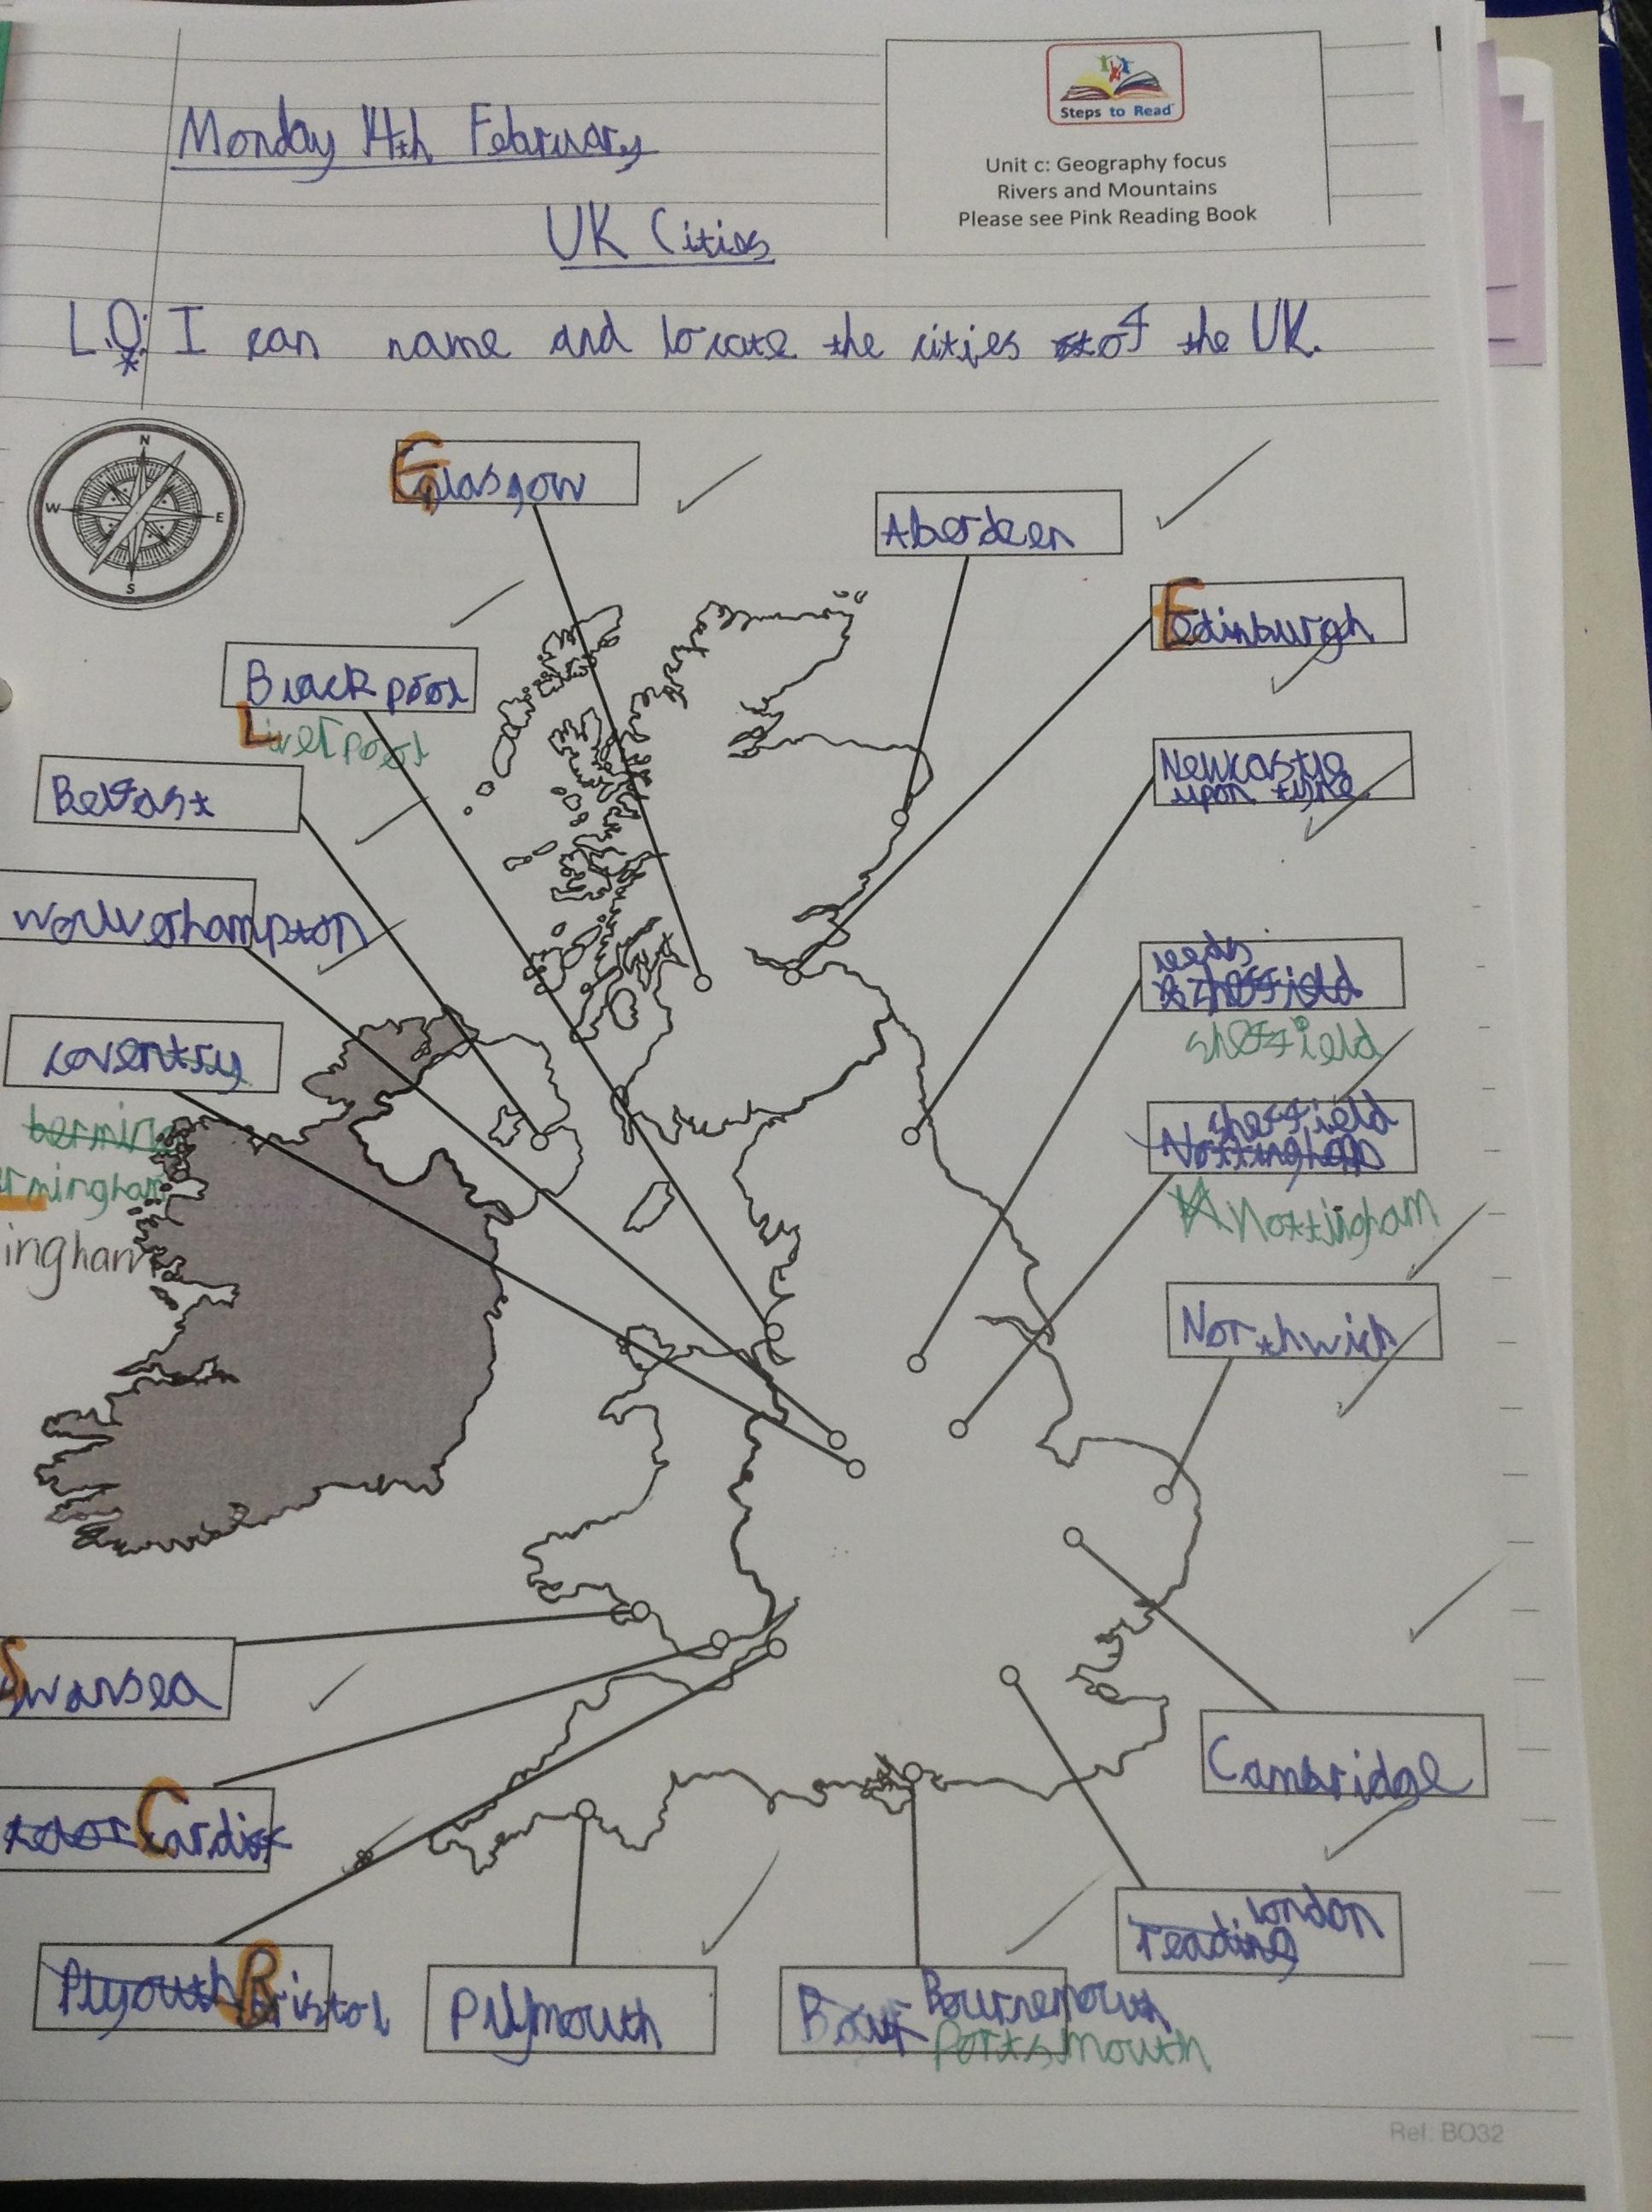 Steps to Read
Unit c: Geography focus
Rivers and Mountains
Please see Pink Reading Book
Monday 14th February
UK Cities
L.O: I can name and locate the cities of the UK.
N
W
E
S
Glasgow
Aberdeen
Edinburgh
Blackpool
Liverpool
Newcastle
upon tyne
Belfast
Wolverhampton
leeds
sheffield
sheffield
coventry
berming
rmingham
ingham
sheffield
Nottingham
Nottingham
Northwich
Swansea
Cambridge
Cardiff
london
reading
Plyouth Bristol
Plymouth
Bournemouth
Portsmouth
Ref: BO32